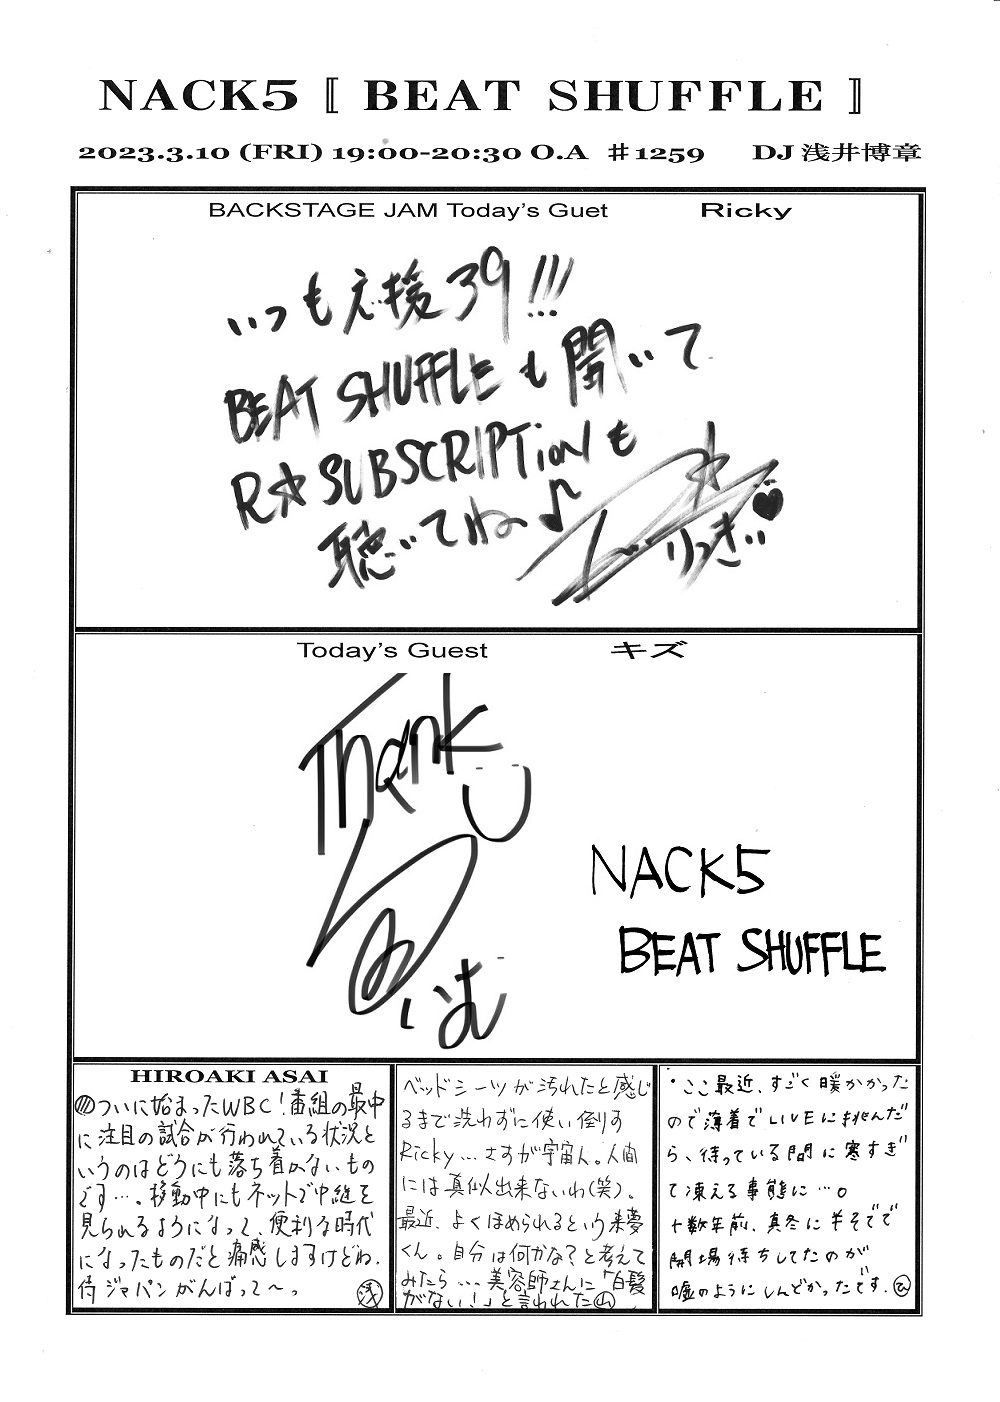 NACK5 〚 BEAT SHUFFLE 〛
2023.3.10 (FRI) 19:00-20:30 O.A ♯1259 DJ 浅井博章
BACKSTAGE JAM Today's Guet Ricky
いつも応援39!!!
BEAT SHUFFLEも聞いて
R☆SUBSCRIPTiONも
聴いてね♪
りっきぃ
Today's Guest キズ
Thank
U
らいむ
NACK5
BEAT SHUFFLE
HIROAKI ASAI
ついに始まったWBC!番組の最中
に注目の試合が行われている状況と
いうのはどうにも落ち着かないもの
です…。移動中にもネットで中継を
見られるようになって、便利な時代
になったものだと痛感しますけどね。
侍ジャパンがんばって〜っ 浅
ベッドシーツが汚れたと感じ
るまで洗わずに使い倒す
Ricky…さすが宇宙人。人間
には真似出来ないわ(笑)。
最近、よくほめられるという来夢
くん。自分は何かな?と考えて
みたら…美容師さんに「白髪
がない!」と言われた 山
・ここ最近、すごく暖かかった
ので薄着でLIVEに挑んだ
ら、待っている間に寒すぎ
て凍える事態に…。
十数年前、真冬に半そでで
開場待ちしてたのが
嘘のようにしんどかったです。